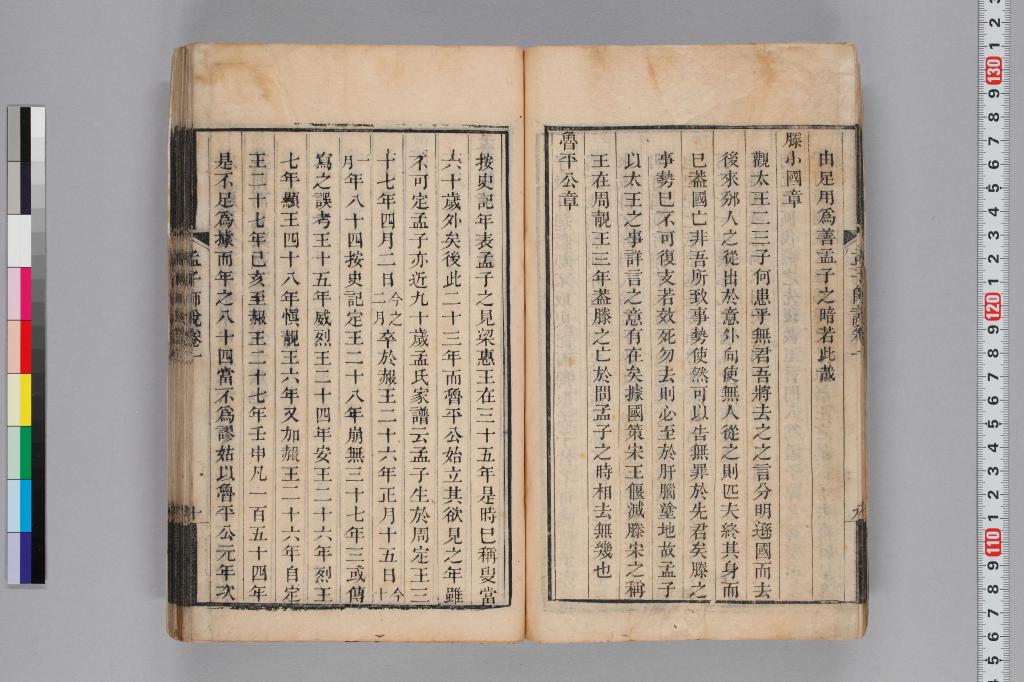 由足用爲善孟子之暗若此哉
滕小國章
觀太王二三子何患乎無君吾將去之之言分明遜國而去
後來邠人之從出於意外向使無人從之則匹夫終其身而
已葢國亡非吾所致事勢使然可以告無罪於先君矣滕之
事勢已不可復支若效死勿去則必至於肝腦塗地故孟子
以太王之事詳言之意有在矣據國策宋王偃滅滕宋之稱
王在周靚王三年葢滕之亡於問孟子之時相去無幾也
魯平公章
孟子師說卷一
九
按史記年表孟子之見梁惠王在三十五年是時已稱叟當
六十歲外矣後此二十三年而魯平公始立其欲見之年雖
不可定孟子亦近九十歲孟氏家譜云孟子生於周定王三
十七年四月二日今之二月卒於赧王二十六年正月十五日今十
一月年八十四按史記定王二十八年崩無三十七年三或傳
寫之誤考王十五年威烈王二十四年安王二十六年烈王
七年顯王四十八年愼靚王六年又加赧王二十六年自定
王二十七年己亥至赧王二十七年壬申凡一百五十四年
是不足爲據而年之八十四當不爲謬姑以魯平公元年次
孟子師說卷一
十
130
120
110